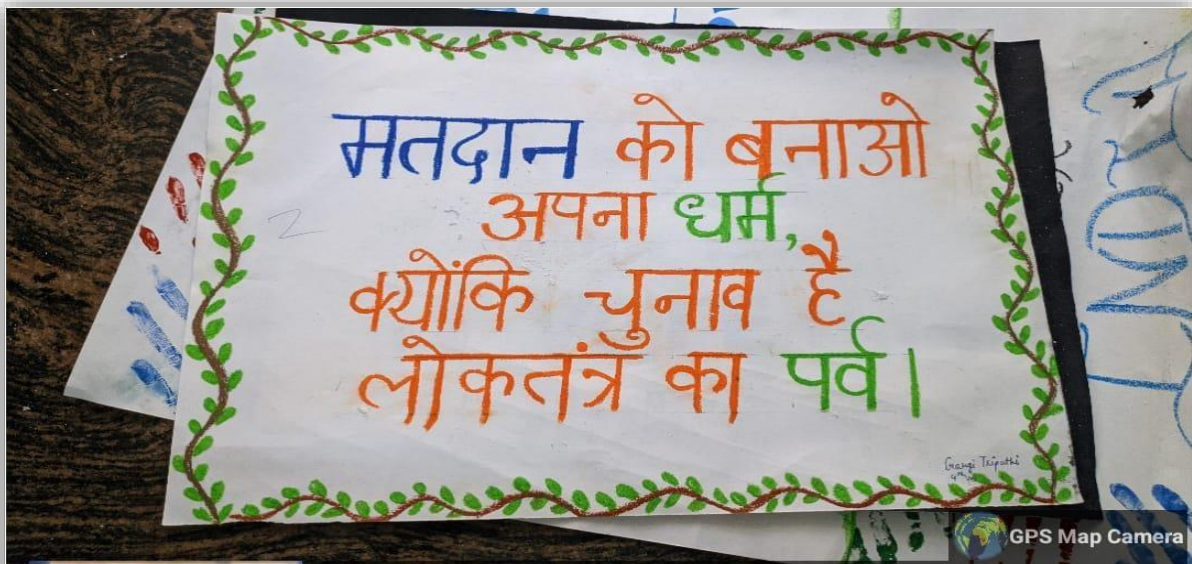 मतदान को बनाओ
अपना धर्म,
क्योंकि चुनाव है
लोकतंत्र का पर्व।
Gargi Tripathi
GPS Map Camera